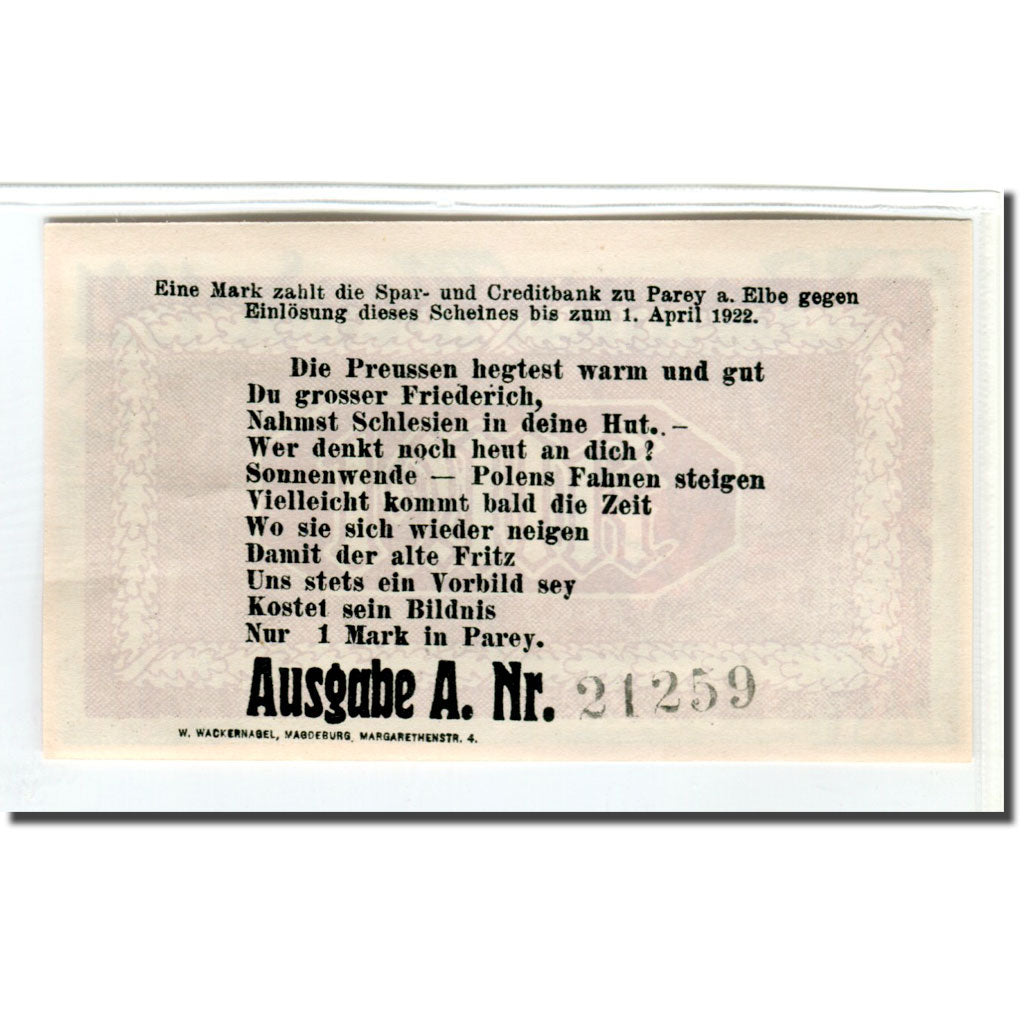 Eine Mark zahlt die Spar- und Creditbank zu Parey a. Elbe gegen
Einlösung dieses Scheines bis zum 1. April 1922.
Die Preussen hegtest warm und gut
Du grosser Friederich,
Nahmst Schlesien in deine Hut. . –
Wer denkt noch heut an dich?
Sonnenwende — Polens Fahnen steigen
Vielleicht kommt bald die Zeit
Wo sie sich wieder neigen
Damit der alte Fritz
Uns stets ein Vorbild sey
Kostet sein Bildnis
Nur 1 Mark in Parey.
Ausgabe A. Nr. 21259
W. WACKERNAGEL, MAGDEBURG, MARGARETHENSTR. 4.